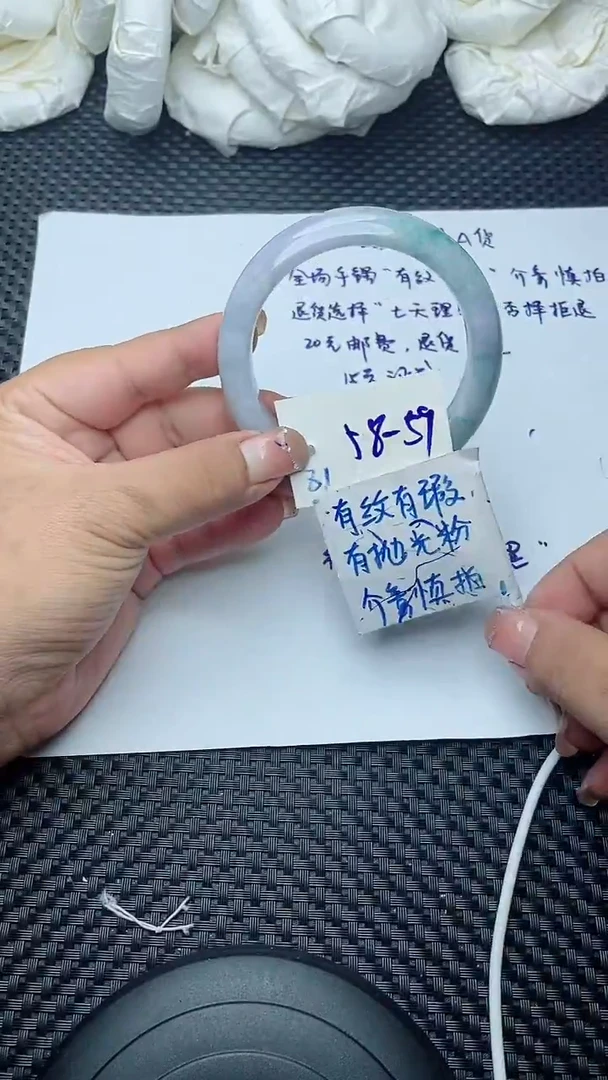 A货
全场手镯"有纹
" 介意慎拍
退货选择"七天理
否择拒退
20元邮费，退货
58-59
31
有纹有瑕
有抛光粉
介意慎拍